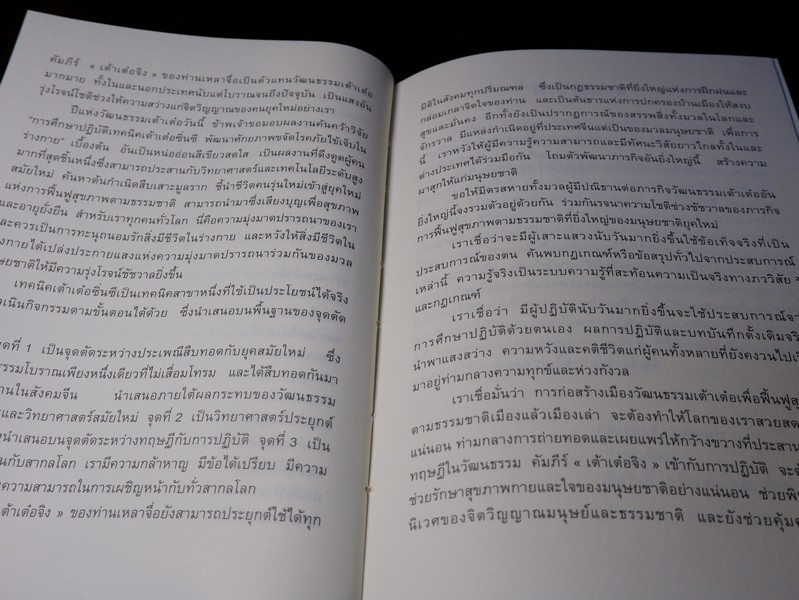 คัมภีร์ « เต้าเต๋อจิง » ของท่านเหลาจื่อเป็นตัวแทนวัฒนธรรมเต้าเต๋อ
มากมาย ทั้งในและนอกประเทศนับแต่โบราณจนถึงปัจจุบัน เป็นแสงอัน
รุ่งโรจน์โชติช่วงให้ความสว่างแก่จิตวิญญาณของคนยุคใหม่อย่างเรา
ปีแห่งวัฒนธรรมเต้าเต๋อวันนี้ ข้าพเจ้าขอมอบผลงานค้นคว้าวิจัย
"การศึกษาปฏิบัติเทคนิคเต้าเต๋อซิ่นซี พัฒนาศักยภาพขจัดโรคภัยไข้เจ็บใน
ร่างกาย" เบื้องต้น อันเป็นหน่ออ่อนสีเขียวสดใส เป็นผลงานที่ดึงดูดผู้คน
มากที่สุดชิ้นหนึ่งซึ่งสามารถประสานกับวิทยาศาสตร์และเทคโนโลยีระดับสูง
สมัยใหม่ ค้นหาต้นกำเนิดสืบเสาะมูลราก ชี้นำชีวิตคนรุ่นใหม่เข้าสู่ยุคใหม่
แห่งการฟื้นฟูสุขภาพตามธรรมชาติ สามารถนำมาซึ่งเสียงบุญเพื่อสุขภาพ
และอายุยั่งยืน สำหรับเราทุกคนทั่วโลก นี่คือความมุ่งมาดปรารถนาของเรา
และควรเป็นการทะนุถนอมรักสิ่งมีชีวิตในร่างกาย และหวังให้สิ่งมีชีวิตใน
างกายได้เปล่งประกายแสงแห่งความมุ่งมาดปรารถนาร่วมกันของมวล
นุษยชาติให้มีความรุ่งโรจน์ชัชวาลยิ่งขึ้น
เทคนิคเต้าเต๋อซิ่นซีเป็นเทคนิคสาขาหนึ่งที่ใช้เป็นประโยชน์ได้จริง
เนินกิจกรรมตามขั้นตอนได้ด้วย ซึ่งนำเสนอบนพื้นฐานของจุดตัด
จุดที่ 1 เป็นจุดตัดระหว่างประเพณีสืบทอดกับยุคสมัยใหม่ ซึ่ง
ธรรมโบราณเพียงหนึ่งเดียวที่ไม่เสื่อมโทรม และได้สืบทอดกันมา
านในสังคมจีน นำเสนอภายใต้ผลกระทบของวัฒนธรรม
และวิทยาศาสตร์สมัยใหม่ จุดที่ 2 เป็นวิทยาศาสตร์ประยุกต์
งนำเสนอบนจุดตัดระหว่างทฤษฎีกับการปฏิบัติ จุดที่ 3 เป็น
นกับสากลโลก เรามีความกล้าหาญ มีข้อได้เปรียบ มีความ
ความสามารถในการเผชิญหน้ากับทั่วสากลโลก
ต้าเต๋อจิง » ของท่านเหลาจื่อยังสามารถประยุกต์ใช้ได้ทุก
มิติในสังคมทุกปริมณฑล ซึ่งเป็นกฎธรรมชาติที่ยิ่งใหญ่แห่งการฝึกฝนและ
กล่อมเกลาจิตใจของท่าน และเป็นต้นธารแห่งการปกครองบ้านเมืองให้สงบ
สุขและมั่นคง อีกทั้งยังเป็นปรากฏการของสรรพสิ่งทั้งมวลในโลกและ
จักรวาล มีแหล่งกำเนิดอยู่ที่ประเทศจีนแต่เป็นของมวลมนุษยชาติ เพื่อการ
นี้ เราหวังให้ผู้มีความรู้ความสามารถและมีทัศนะวิสัยยาวไกลทั้งในและ
ต่างประเทศได้ร่วมมือกัน โถมตัวพัฒนาภารกิจอันยิ่งใหญ่นี้ สร้างความ
ผาสุกให้แก่มนุษยชาติ
ขอให้มิตรสหายทั้งมวลผู้มีปณิธานต่อภารกิจวัฒนธรรมเต้าเต๋ออัน
ยิ่งใหญ่นี้จงรวมตัวอยู่ด้วยกัน ร่วมกันรจนาความโชติช่วงชัชวาลของภารกิจ
การฟื้นฟูสุขภาพตามธรรมชาติที่ยิ่งใหญ่ของมนุษยชาติยุคใหม่
เราเชื่อว่าจะมีผู้เสาะแสวงนับวันมากยิ่งขึ้นใช้ข้อเท็จจริงที่เป็น
ประสบการณ์ของตน ค้นพบกฎเกณฑ์หรือข้อสรุปทั่วไปจากประสบการณ์
เหล่านี้ ความรู้จริงเป็นระบบความรู้ที่สะท้อนความเป็นจริงทางภววิสัย
และกฎเกณฑ์
เราเชื่อว่า มีผู้ปฏิบัตินับวันมากยิ่งขึ้นจะใช้ประสบการณ์จา
การศึกษาปฏิบัติด้วยตนเอง ผลการปฏิบัติและบทบันทึกดั้งเดิมจริ
นำพาแสงสว่าง ความหวังและคติชีวิตแก่ผู้คนทั้งหลายที่ยังคงวนไปเ
มาอยู่ท่ามกลางความทุกข์และห่วงกังวล
เราเชื่อมั่นว่า การก่อสร้างเมืองวัฒนธรรมเต้าเต๋อเพื่อฟื้นฟูสุ
ตามธรรมชาติเมืองแล้วเมืองเล่า จะต้องทำให้โลกของเราสวยสด
แน่นอน ท่ามกลางการถ่ายทอดและเผยแพร่ให้กว้างขวางที่ประสาน
ทฤษฎีในวัฒนธรรม คัมภีร์ « เต้าเต๋อจิง » เข้ากับการปฏิบัติ จะ
ช่วยรักษาสุขภาพกายและใจของมนุษยชาติอย่างแน่นอน ช่วยพิ
นิเวศของจิตวิญญาณมนุษย์และธรรมชาติ และยังช่วยคุ้ม